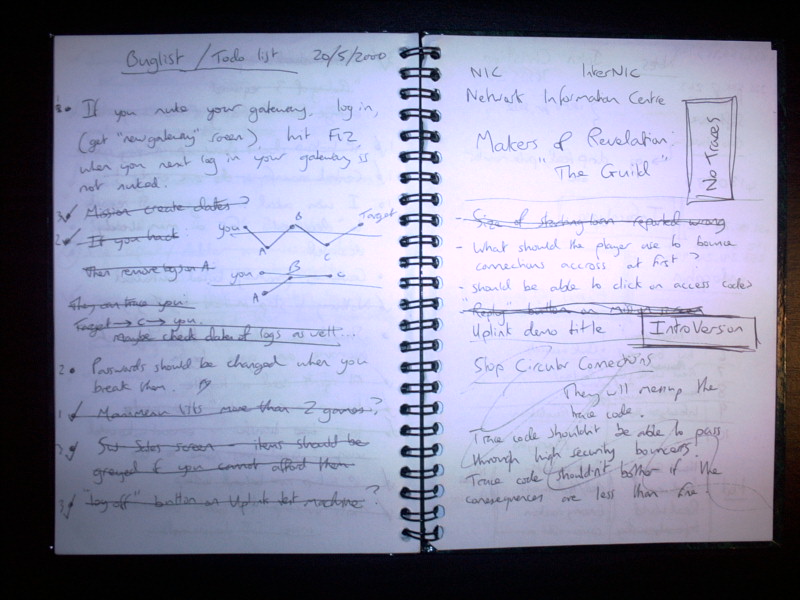 Buglist / Todo list 20/5/2000
If you nuke your gateway, log in,
(get "new gateway" screen), hit F12,
when you next log in your gateway is
not nuked.
3 Mission create dates ?
2 If you hack
you A B C Target
then remove logs on A
you B C
A
They can trace you:
Target → C → you.
maybe check dates of logs as well...
2 Passwords should be changed when you
break them.
1 more than 2 games ?
3 Sales screen - items should be
greyed if you cannot afford them
3 "log off" button on Uplink test machine ?
NIC InterNIC
Network Information Centre
No Traces
Makers of Revelation:
"The Guild"
- Size of starting loan reported wrong
- What should the player use to bounce
connections accross at first ?
- should be able to click on access codes
"Reply" button on screen
Uplink demo title IntroVersion
Stop Circular Connections
They will messup the
trace code.
Trace code shouldnt be able to pass
through high security bouncers.
Trace code shouldn't bother if the
consequences are less than fine.